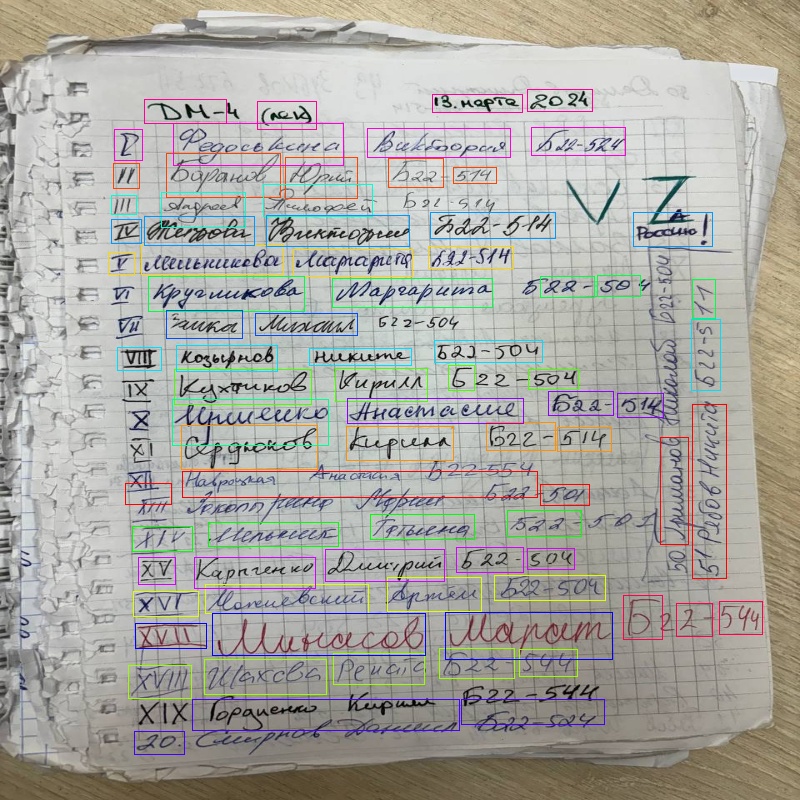 ДМ-4 (лек) 13. марта 2024
I Федоськина Виктория Б22-524
II Баранов Юрий Б22-514
III Андреев Тимофей Б22-514
IV Виктория Б22-514
V Мельникова Маргарита Б22-514
VI Кругликова Маргарита Б22-504
VII Заика Михаил Б22-504
VIII Козырнов Никита Б22-504
IX Кухтиков Кирилл Б22-504
X Иршенко Анастасия Б22-514
XI Сердюков Кирилл Б22-514
XII Навроцкая Анастасия Б22-554
XIII Мария Б22-501
XIV Мельник Татьяна Б22-502
XV Карпченко Дмитрий Б22-504
XVI Можиевский Артём Б22-504
XVII Минасов Марат Б22-544
XVIII Шахова Рената Б22-544
XIX Гордиенко Кирилл Б22-544
20. Смирнов Даниил Б22-524
V Z
Россию!
50 Николай Б22-504
51 Рябов Никита Б22-511